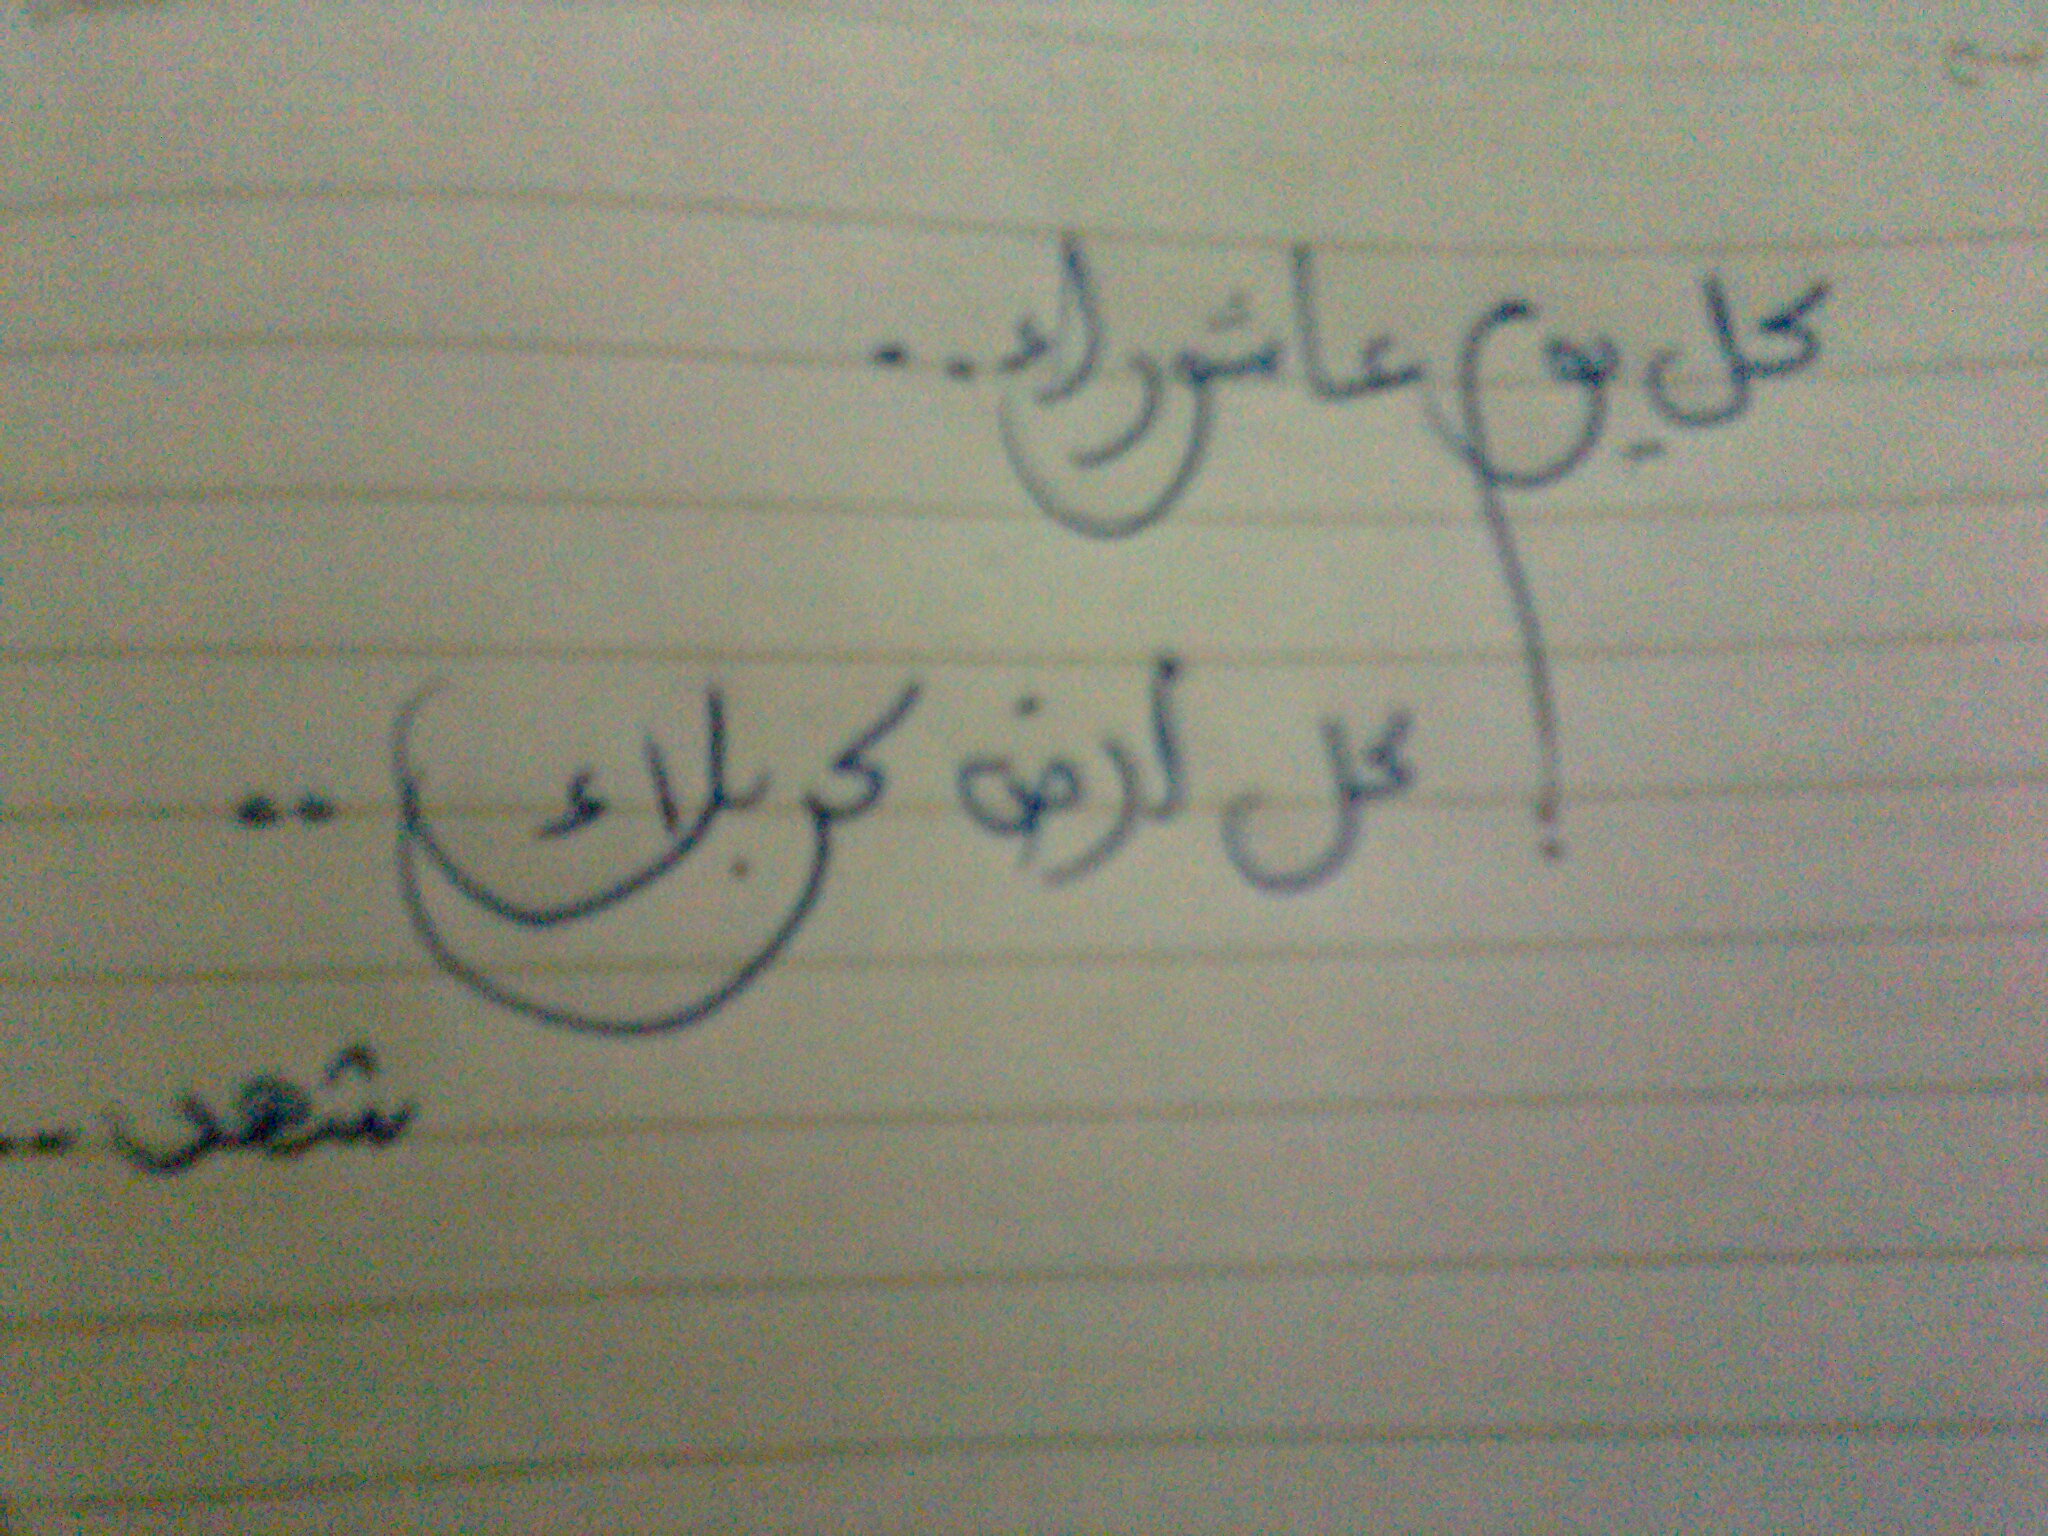 كل يوم عاشوراء..
كل أرض كربلاء..